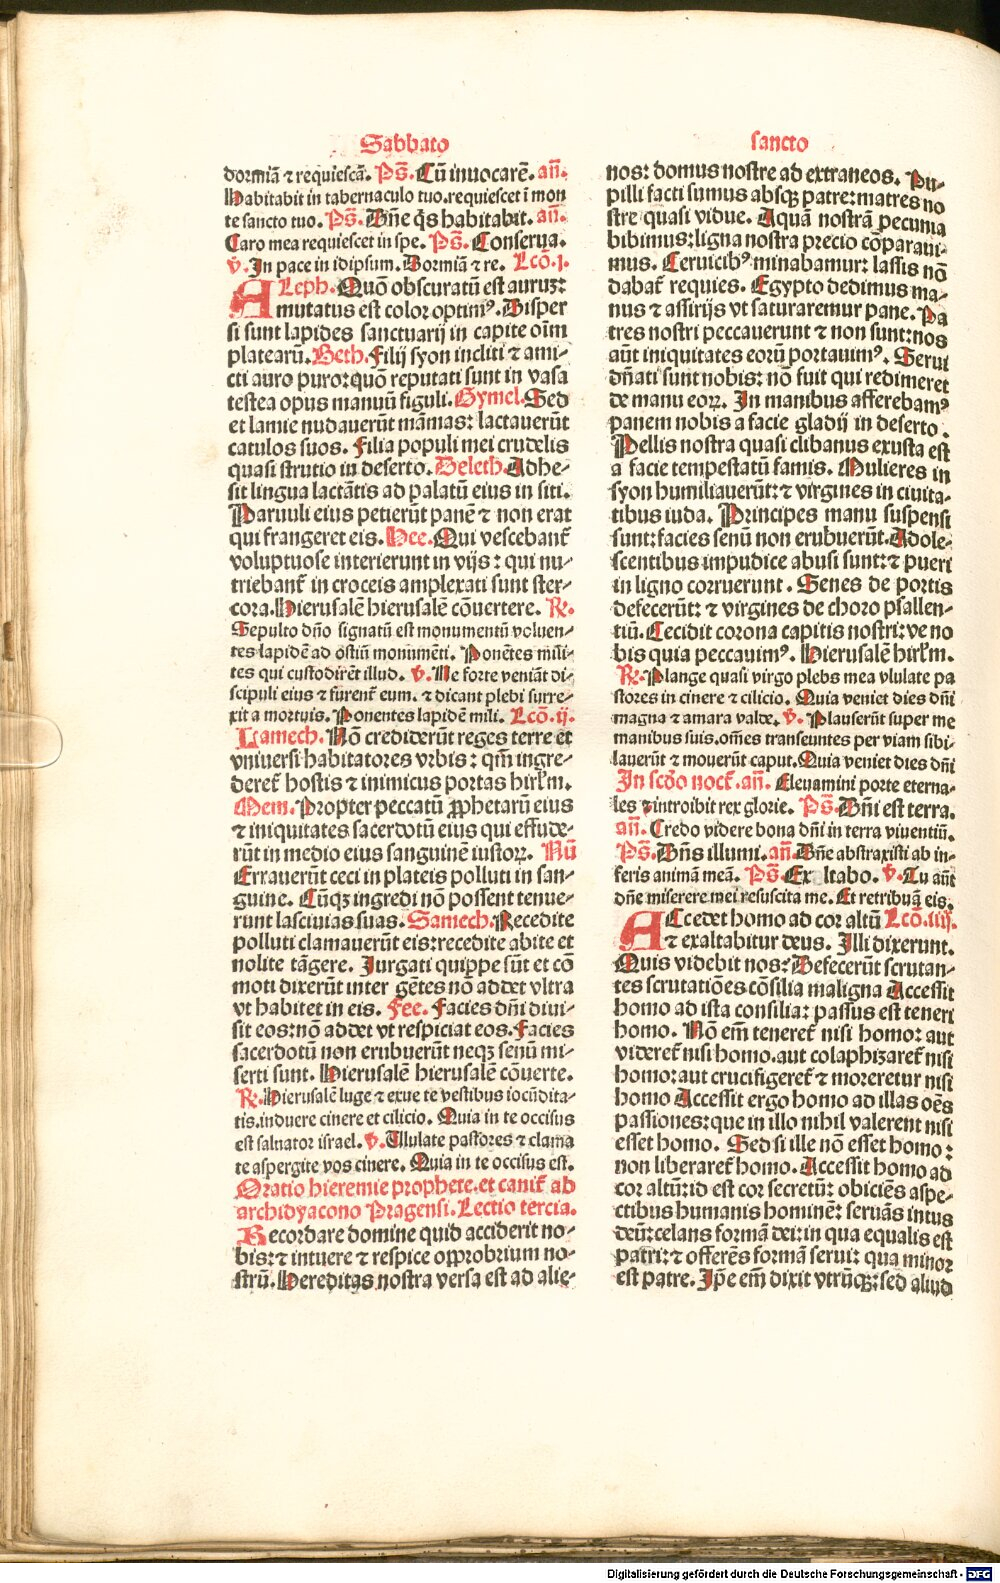 Sabbato
dormiā ⁊ requiescā. Ps̄. Cū inuocarē. añ.
Habitabit in tabernaculo tuo. requiescet ī mon
te sancto tuo. Ps̄. Dñe q̄s habitabit. añ.
Caro mea requiescet in spe. Ps̄. Conserua.
v̄. In pace in idipsum. Dormiā ⁊ re. Lcō. j.
ALeph. Quō obscuratū est auruꝫ:
mutatus est color optimꝰ. Disper
si sunt lapides sanctuarij in capite oīm
platearū. Beth. Filij syon incliti ⁊ ami-
cti auro puro: quō reputati sunt in vasa
testea opus manuū figuli. Gymel. Sed
et lamie nudauerūt māmas: lactauerūt
catulos suos. Filia populi mei crudelis
quasi strutio in deserto. Deleth. Adhe-
sit lingua lactātis ad palatū eius in siti.
Paruuli eius petierūt panē ⁊ non erat
qui frangeret eis. Hee. Qui vescebant᷑
voluptuose interierunt in vijs: qui nu-
triebant᷑ in croceis amplexati sunt ster-
cora. Hierusalē hierusalē cōuertere. R.
Sepulto dño signatū est monumentū voluen-
tes lapidē ad ostiū monumēti. Ponētes mili-
tes qui custodirēt illud. v̄. Ne forte veniāt di-
scipuli eius ⁊ furent᷑ eum. ⁊ dicant plebi surre-
xit a mortuis. Ponentes lapidē mili. Lcō. ij.
Lamech. Nō crediderūt reges terre et
vniuersi habitatores vrbis: qm̄ ingre-
deret᷑ hostis ⁊ inimicus portas hirl'm.
Mem. Propter peccatū ꝓphetarū eius
⁊ iniquitates sacerdotū eius qui effude-
rūt in medio eius sanguinē iustoꝝ. Nū
Errauerūt ceci in plateis polluti in san-
guine. Cūqꝫ ingredi nō possent tenue-
runt lascinias suas. Samech. Recedite
polluti clamauerūt eis: recedite abite et
nolite tāgere. Jurgati quippe sūt et cō
moti dixerūt inter gētes nō addet vltra
vt habitet in eis. Fee. Facies dñi diui-
sit eos: nō addet vt respiciat eos. Facies
sacerdotū non erubuerūt neqꝫ senū mi-
serti sunt. Hierusalē hierusalē cōuerte.
R. Hierusalē luge ⁊ exue te vestibus iocūdita-
tis. induere cinere et cilicio. Quia in te occisus
est saluator israel. v̄. Ullulate pastores ⁊ clama
te aspergite vos cinere. Quia in te occisus est.
Oratio hieremie prophete. et canit᷑ ab
archidyacono Pragensi. Lectio tercia.
Recordare domine quid acciderit no-
bis: ⁊ intuere ⁊ respice opprobrium no-
strū. Hereditas nostra versa est ad alie-
sancto
nos: domus nostre ad extraneos. Pu-
pilli facti sumus absqꝫ patre: matres no
stre quasi vidue. Aquā nostrā pecunia
bibimus: ligna nostra precio cōparaui-
mus. Ceruicibꝰ minabamur: lassis nō
dabat᷑ requies. Egypto dedimus ma-
nus ⁊ assirijs vt saturaremur pane. Pa
tres nostri peccauerunt ⁊ non sunt: nos
aūt iniquitates eorū portauimꝰ. Serui
dñati sunt nobis: nō fuit qui redimeret
de manu eoꝝ. In manibus afferebamꝰ
panem nobis a facie gladij in deserto.
Pellis nostra quasi clibanus exusta est
a facie tempestatū famis. Mulieres in
syon humiliauerūt: ⁊ virgines in ciuita-
tibus iuda. Principes manu suspensi
sunt: facies senū non erubuerūt. Adole-
scentibus impudice abusi sunt: ⁊ pueri
in ligno corruerunt. Senes de portis
defecerūt: ⁊ virgines de choro psallen-
tiū. Cecidit corona capitis nostri: ve no
bis quia peccauimꝰ. Hierusalē hirl'm.
R. Plange quasi virgo plebs mea vlulate pa
stores in cinere ⁊ cilicio. Quia veniet dies dñi
magna ⁊ amara valde. v̄. Plauserūt super me
manibus suis. oēms transeuntes per viam sibi-
lauerūt ⁊ mouerūt caput. Quia veniet dies dñi
In scd̄o noct᷑. añ. Eleuamini porte eterna-
les ⁊ introibit rex glorie. Ps̄. Dñi est terra.
añ. Credo videre bona dñi in terra viuentiū.
Ps̄. Dñs illumi. añ. Dñe abstraxisti ab in-
feris animā meā. Ps̄. Exaltabo. v̄. Tu aūt
dñe miserere mei resuscita me. Et retribuā eis.
ACcedet homo ad cor altū Lcō. iiij.
⁊ exaltabitur deus. Illi dixerunt.
Quis videbit nos? Defecerūt scrutan-
tes scrutatiōes cōsilia maligna Accessit
homo ad ista consilia: passus est teneri
homo. Nō em̄ teneret᷑ nisi homo: aut
videret᷑ nisi homo. aut colaphizaret᷑ nisi
homo: aut crucifigeret᷑ ⁊ moreretur nisi
homo Accessit ergo homo ad illas oēs
passiones: que in illo nihil valerent nisi
esset homo. Sed si ille nō esset homo:
non liberaret᷑ homo. Accessit homo ad
cor altū: id est cor secretū: obiciēs aspe-
ctibus humanis hominē: seruās intus
deū: celans formā dei: in qua equalis est
patri: ⁊ offerēs formā serui: qua minor
est patre. Ip̄e em̄ dixit vtrūqꝫ: sed aliud
Digitalisierung gefördert durch die Deutsche Forschungsgemeinschaft - DFG